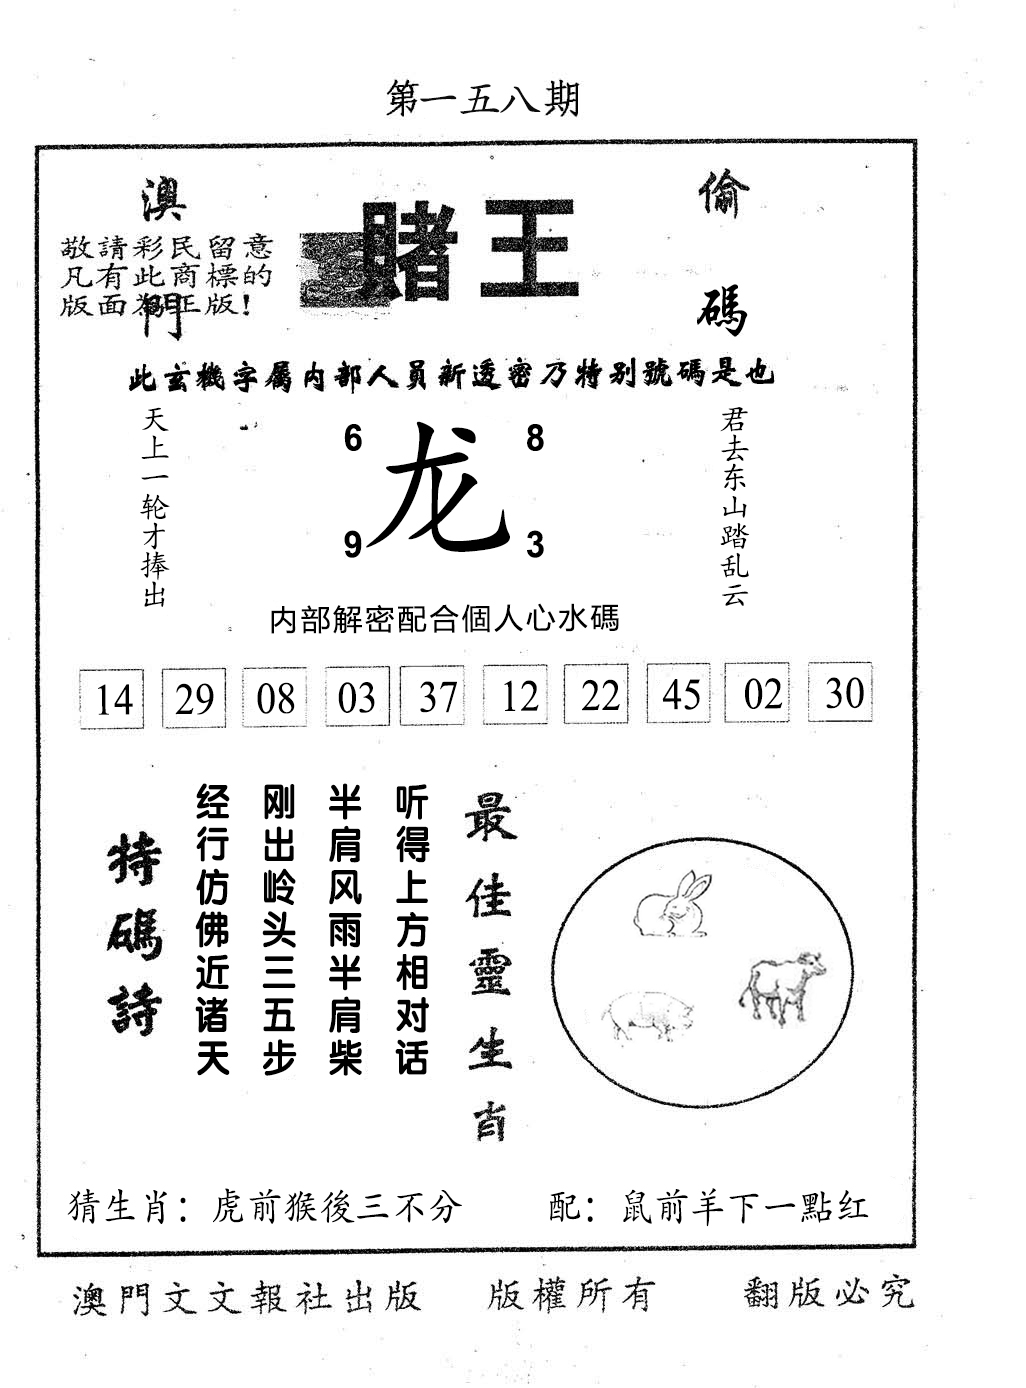 第一五八期
澳門
賭王
偷碼
敬請彩民留意
凡有此商標的
版面為正版!
此玄機字屬内部人員新透密乃特别號碼是也
天上一轮才捧出
6 8
龙
9 3
君去东山踏乱云
内部解密配合個人心水碼
14 29 08 03 37 12 22 45 02 30
特碼詩
经行仿佛近诸天
刚出岭头三五步
半肩风雨半肩柴
听得上方相对话
最佳靈生肖
猜生肖：虎前猴後三不分 配：鼠前羊下一點红
澳門文文報社出版 版權所有 翻版必究